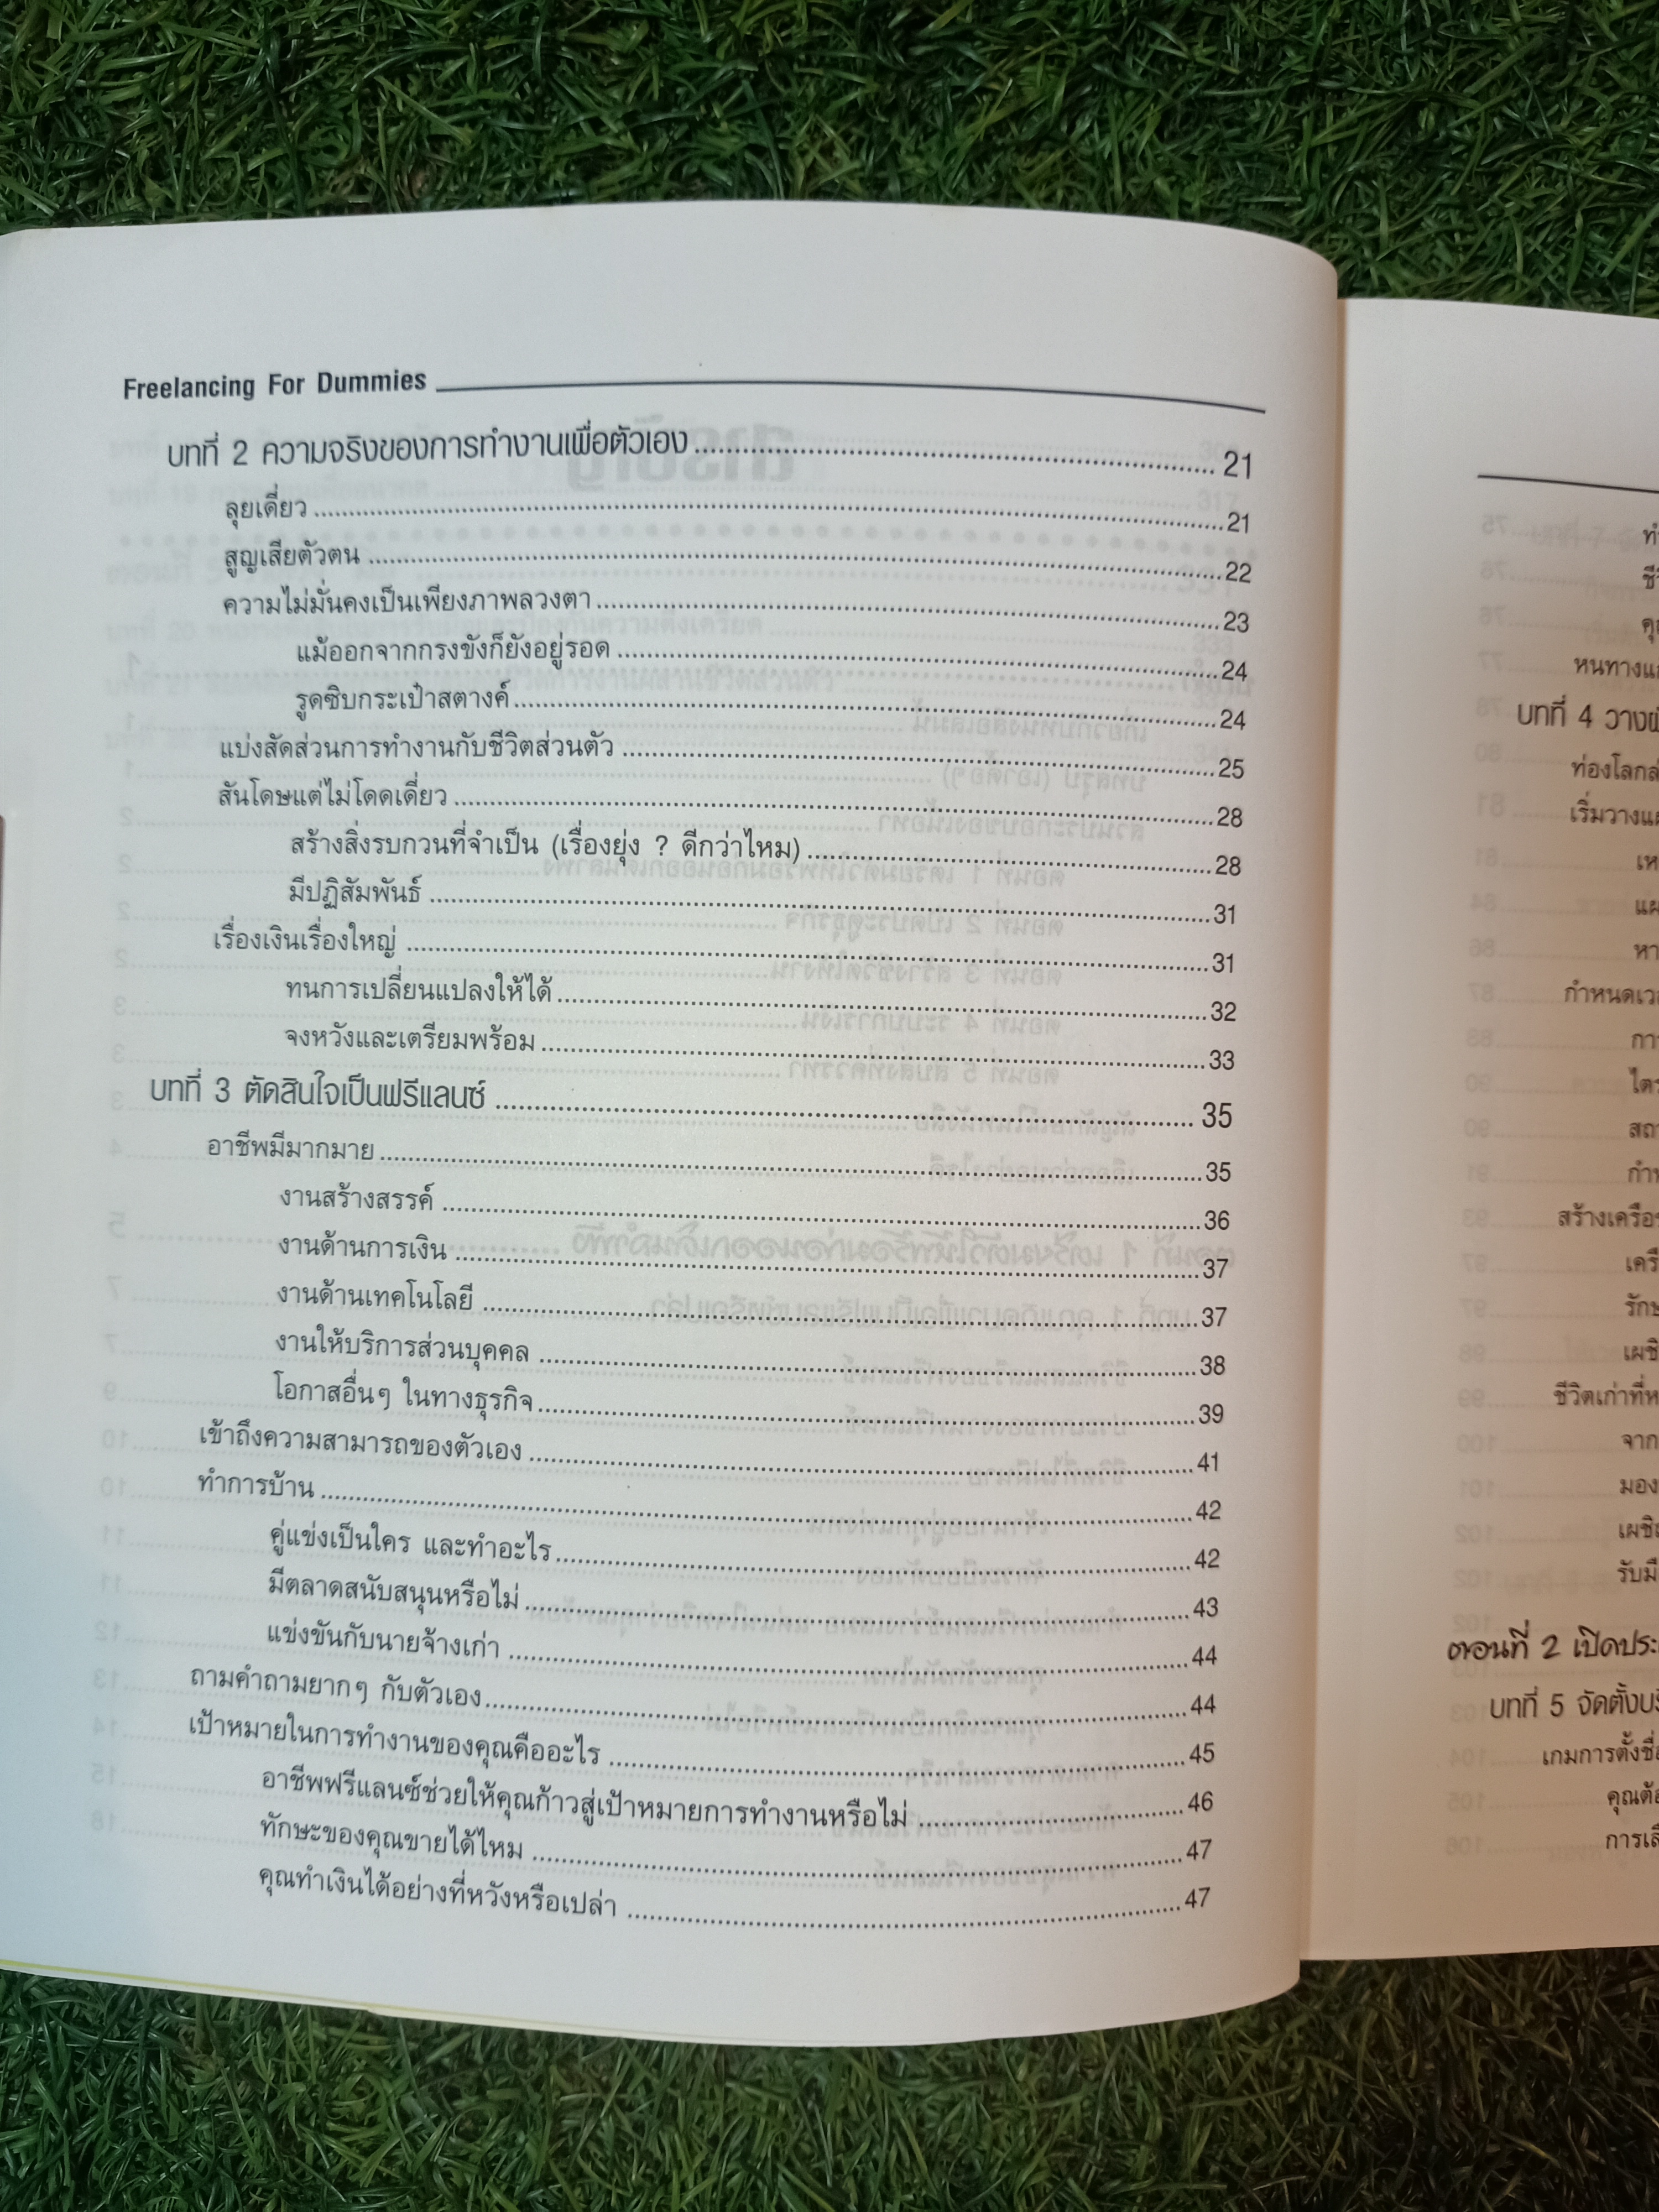 Freelancing For Dummies
บทที่ 2 ความจริงของการทำงานเพื่อตัวเอง 21
ลุยเดี่ยว 21
สูญเสียตัวตน 22
ความไม่มั่นคงเป็นเพียงภาพลวงตา 23
แม้ออกจากกรงขังก็ยังอยู่รอด 24
รูดซิบกระเป๋าสตางค์ 24
แบ่งสัดส่วนการทำงานกับชีวิตส่วนตัว 25
สันโดษแต่ไม่โดดเดี่ยว 28
สร้างสิ่งรบกวนที่จำเป็น (เรื่องยุ่ง ? ดีกว่าไหม) 28
มีปฏิสัมพันธ์ 31
เรื่องเงินเรื่องใหญ่ 31
ทนการเปลี่ยนแปลงให้ได้ 32
จงหวังและเตรียมพร้อม 33
บทที่ 3 ตัดสินใจเป็นฟรีแลนซ์ 35
อาชีพมีมากมาย 35
งานสร้างสรรค์ 36
งานด้านการเงิน 37
งานด้านเทคโนโลยี 37
งานให้บริการส่วนบุคคล 38
โอกาสอื่นๆ ในทางธุรกิจ 39
เข้าถึงความสามารถของตัวเอง 41
ทำการบ้าน 42
คู่แข่งเป็นใคร และทำอะไร 42
มีตลาดสนับสนุนหรือไม่ 43
แข่งขันกับนายจ้างเก่า 44
ถามคำถามยากๆ กับตัวเอง 44
เป้าหมายในการทำงานของคุณคืออะไร 45
อาชีพฟรีแลนซ์ช่วยให้คุณก้าวสู่เป้าหมายการทำงานหรือไม่ 46
ทักษะของคุณขายได้ไหม 47
คุณทำเงินได้อย่างที่หวังหรือเปล่า 47
หนทาง
บทที่ 4
ท่องโลก
กำหนด
สร้าง
ชีวิตเก่าที่
จาก
มอง
ตอนที่ 2
บทที่ 5 จัดตั้ง
เกมการตั้ง